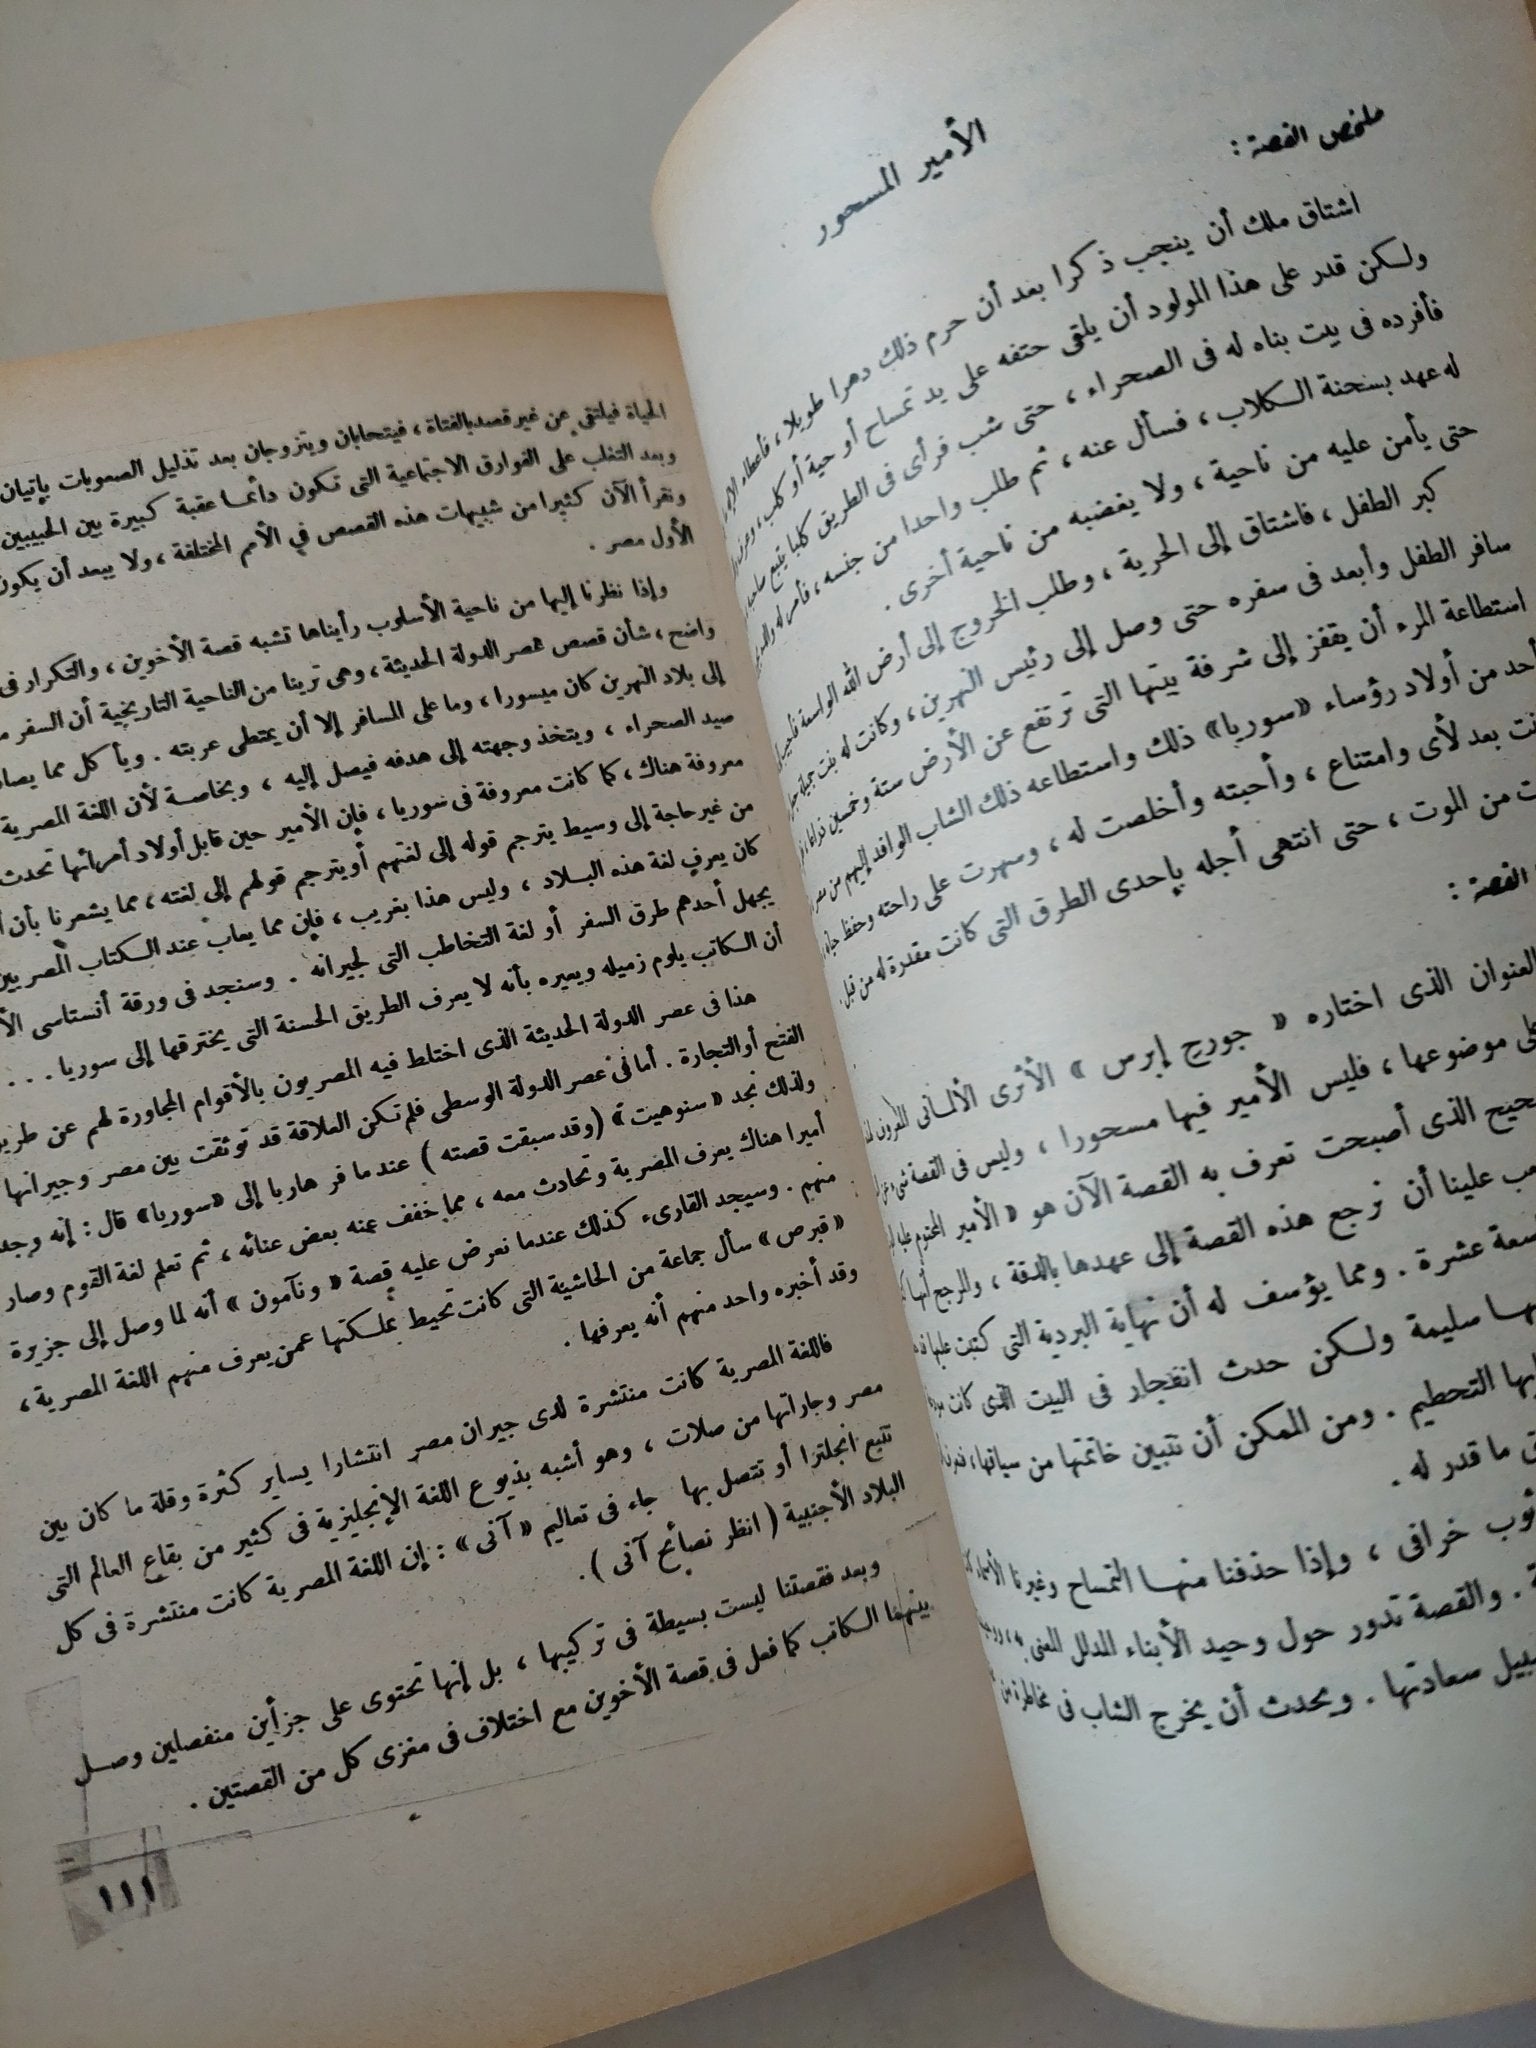 الأمير المسحور
ملخص القصة :
اشتاق ملك أن ينجب ذكرا بعد أن حرم ذلك دهرا طويلا ، فأعطاه
ولكن قدر على هذا المولود أن يلقى حتفه على يد تمساح أو حية أو كلب ،
فأفرده فى بيت بناه له فى الصحراء ، حتى شب فرأى فى الطريق كلبا يتبع
له عهد بسحنة الكلاب ، فسأل عنه ، ثم طلب واحدا من جنسه ، فأمر له
حتى يأمن عليه من ناحية ، ولا يغضبه من ناحية أخرى .
كبر الطفل ، فاشتاق إلى الحرية ، وطلب الخروج إلى أرض الله الواسعة
سافر الطفل وأبعد فى سفره حتى وصل إلى رئيس النهرين ، وكانت له بنت جميلة
استطاعة المرء أن يقفز إلى شرفة بيتها التى ترتفع عن الأرض ستة وخمسين ذراعا ،
أحد من أولاد رؤساء «سوريا» ذلك واستطاعه ذلك الشاب الوافد إليهم من
بعد لأى وامتناع ، وأحبته وأخلصت له ، وسهرت على راحته وحفظ
من الموت ، حتى انتهى أجله بإحدى الطرق التى كانت مقدرة له من قبل .
القصة :
العنوان الذى اختاره « جورج إبرس » الأثرى الألمانى
على موضوعها ، فليس الأمير فيها مسحورا ، وليس فى القصة
الذى أصبحت تعرف به القصة الآن هو « الأمير المحتوم
علينا أن نرجع هذه القصة إلى عهدها بالدقة ، والمرجح أنها
عشرة . ومما يؤسف له أن نهاية البردية التى كتبت عليها
سليمة ولكن حدث انفجار فى البيت الذى كانت
التحطيم . ومن الممكن أن نتبين خاتمتها من سياقها ،
ما قدر له .
خرافى ، وإذا حذفنا منها التمساح وغيرنا الأسماء
والقصة تدور حول وحيد الأبناء المدلل المعنى به ،
سعادتها . ويحدث أن يخرج الشاب فى مخاطرة من
الحياة فيلتقى عن غير قصد بالفتاة ، فيتحابان ويتزوجان بعد تذليل الصعوبات بإتيان
وبعد التغلب على الفوارق الاجتماعية التى تكون دائما عقبة كبيرة بين الحبيبين
ونقرأ الآن كثيرا من شبيهات هذه القصص فى الأمم المختلفة ، ولا يبعد أن يكون
الأول مصر .
وإذا نظرنا إليها من ناحية الأسلوب رأيناها تشبه قصة الأخوين ، والتكرار فى
واضح ، شأن قصص عصر الدولة الحديثة ، وهى ترينا من الناحية التاريخية أن السفر
إلى بلاد النهرين كان ميسورا ، وما على المسافر إلا أن يمتطى عربته . ويأكل مما
صيد الصحراء ، ويتخذ وجهته إلى هدفه فيصل إليه ، وبخاصة لأن اللغة المصرية
معروفة هناك ، كما كانت معروفة فى سوريا ، فإن الأمير حين قابل أولاد أمرائها تحدث
من غير حاجة إلى وسيط يترجم قوله إلى لغتهم أو يترجم قولهم إلى لغته ، مما يشعرنا بأن
كان يعرف لغة هذه البلاد ، وليس هذا بغريب ، فإن مما يعاب عند الكتاب المصريين
يجهل أحدهم طرق السفر أو لغة التخاطب التى لجيرانه . وسنجد فى ورقة أنستاسى
أن الكاتب يلوم زميله ويعيره بأنه لا يعرف الطريق الحسنة التى يخترقها إلى سوريا . . .
هذا فى عصر الدولة الحديثة الذى اختلط فيه المصريون بالأقوام المجاورة لهم عن
الفتح أو التجارة . أما فى عصر الدولة الوسطى فلم تكن العلاقة قد توثقت بين مصر وجيرانها
ولذلك نجد «سنوهيت» (وقد سبقت قصته) عندما فر هاربا إلى «سوريا» قال : إنه وجد
أميرا هناك يعرف المصرية وتحادث معه ، مما خفف عنه بعض عنائه ، ثم تعلم لغة القوم وصار
منهم . وسيجد القارىء كذلك عندما نعرض عليه قصة « ونآمون » أنه لما وصل إلى جزيرة
«قبرص» سأل جماعة من الحاشية التى كانت تحيط بملكتها عمن يعرف منهم اللغة المصرية ،
وقد أخبره واحد منهم أنه يعرفها .
فاللغة المصرية كانت منتشرة لدى جيران مصر انتشارا يساير كثرة وقلة ما كان بين
مصر وجاراتها من صلات ، وهو أشبه بذيوع اللغة الإنجليزية فى كثير من بقاع العالم التى
تتبع انجلترا أو تتصل بها جاء فى تعاليم «آنى» : إن اللغة المصرية كانت منتشرة فى كل
البلاد الأجنبية ( انظر نصائح آنى ) .
وبعد فقصتنا ليست بسيطة فى تركيبها ، بل إنها تحتوى على جزأين منفصلين وصل
بينهما الكاتب كما فعل فى قصة الأخوين مع اختلاف فى مغزى كل من القصتين .
١١١